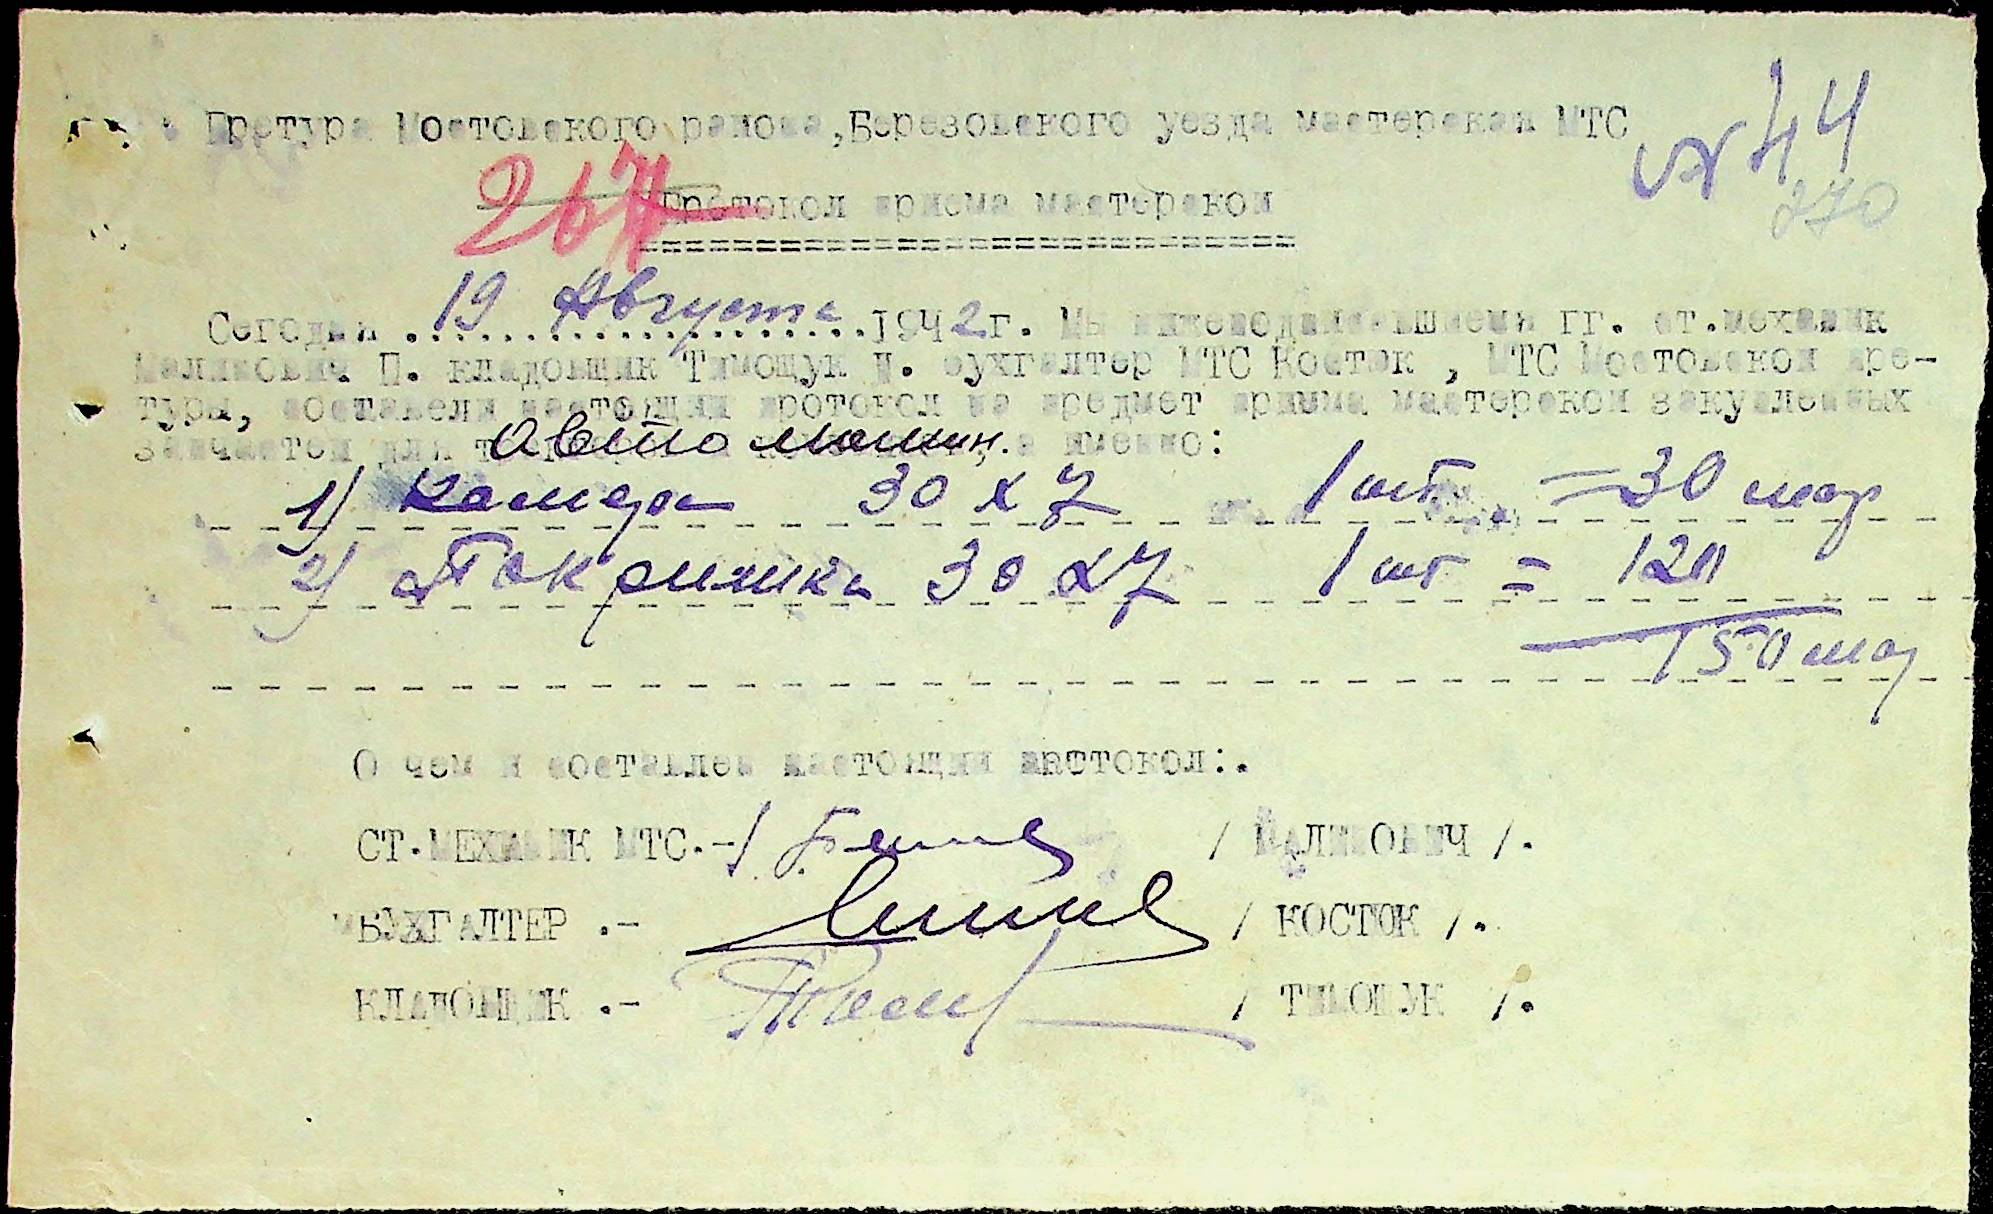 Претура Мостовского района, Березовского уезда мастерская МТС
№ 44
270
267
Протокол приема мастерской
Сегодня 19 Августа 1942 г. Мы нижеподписавшиеся гг. ст.механик
Маликович П. кладовщик Тимощук П. бухгалтер МТС Косток , МТС Мостовской пре-
туры, составели настоящий протокол на предмет приема мастерской закупленных
запчастей для автомашин. а именно:
1) Камера 30 х 7 1 шт. = 30 мар
2) Покришка 30 х 7 1 шт = 120
150 мар
О чем и составлен настоящий
СТ.МЕХАНИК МТС.-/ / МАЛИКОВИЧ /.
БУХГАЛТЕР .- / КОСТОК /.
КЛАДОВЩИК .- / ТИМОЩУК /.